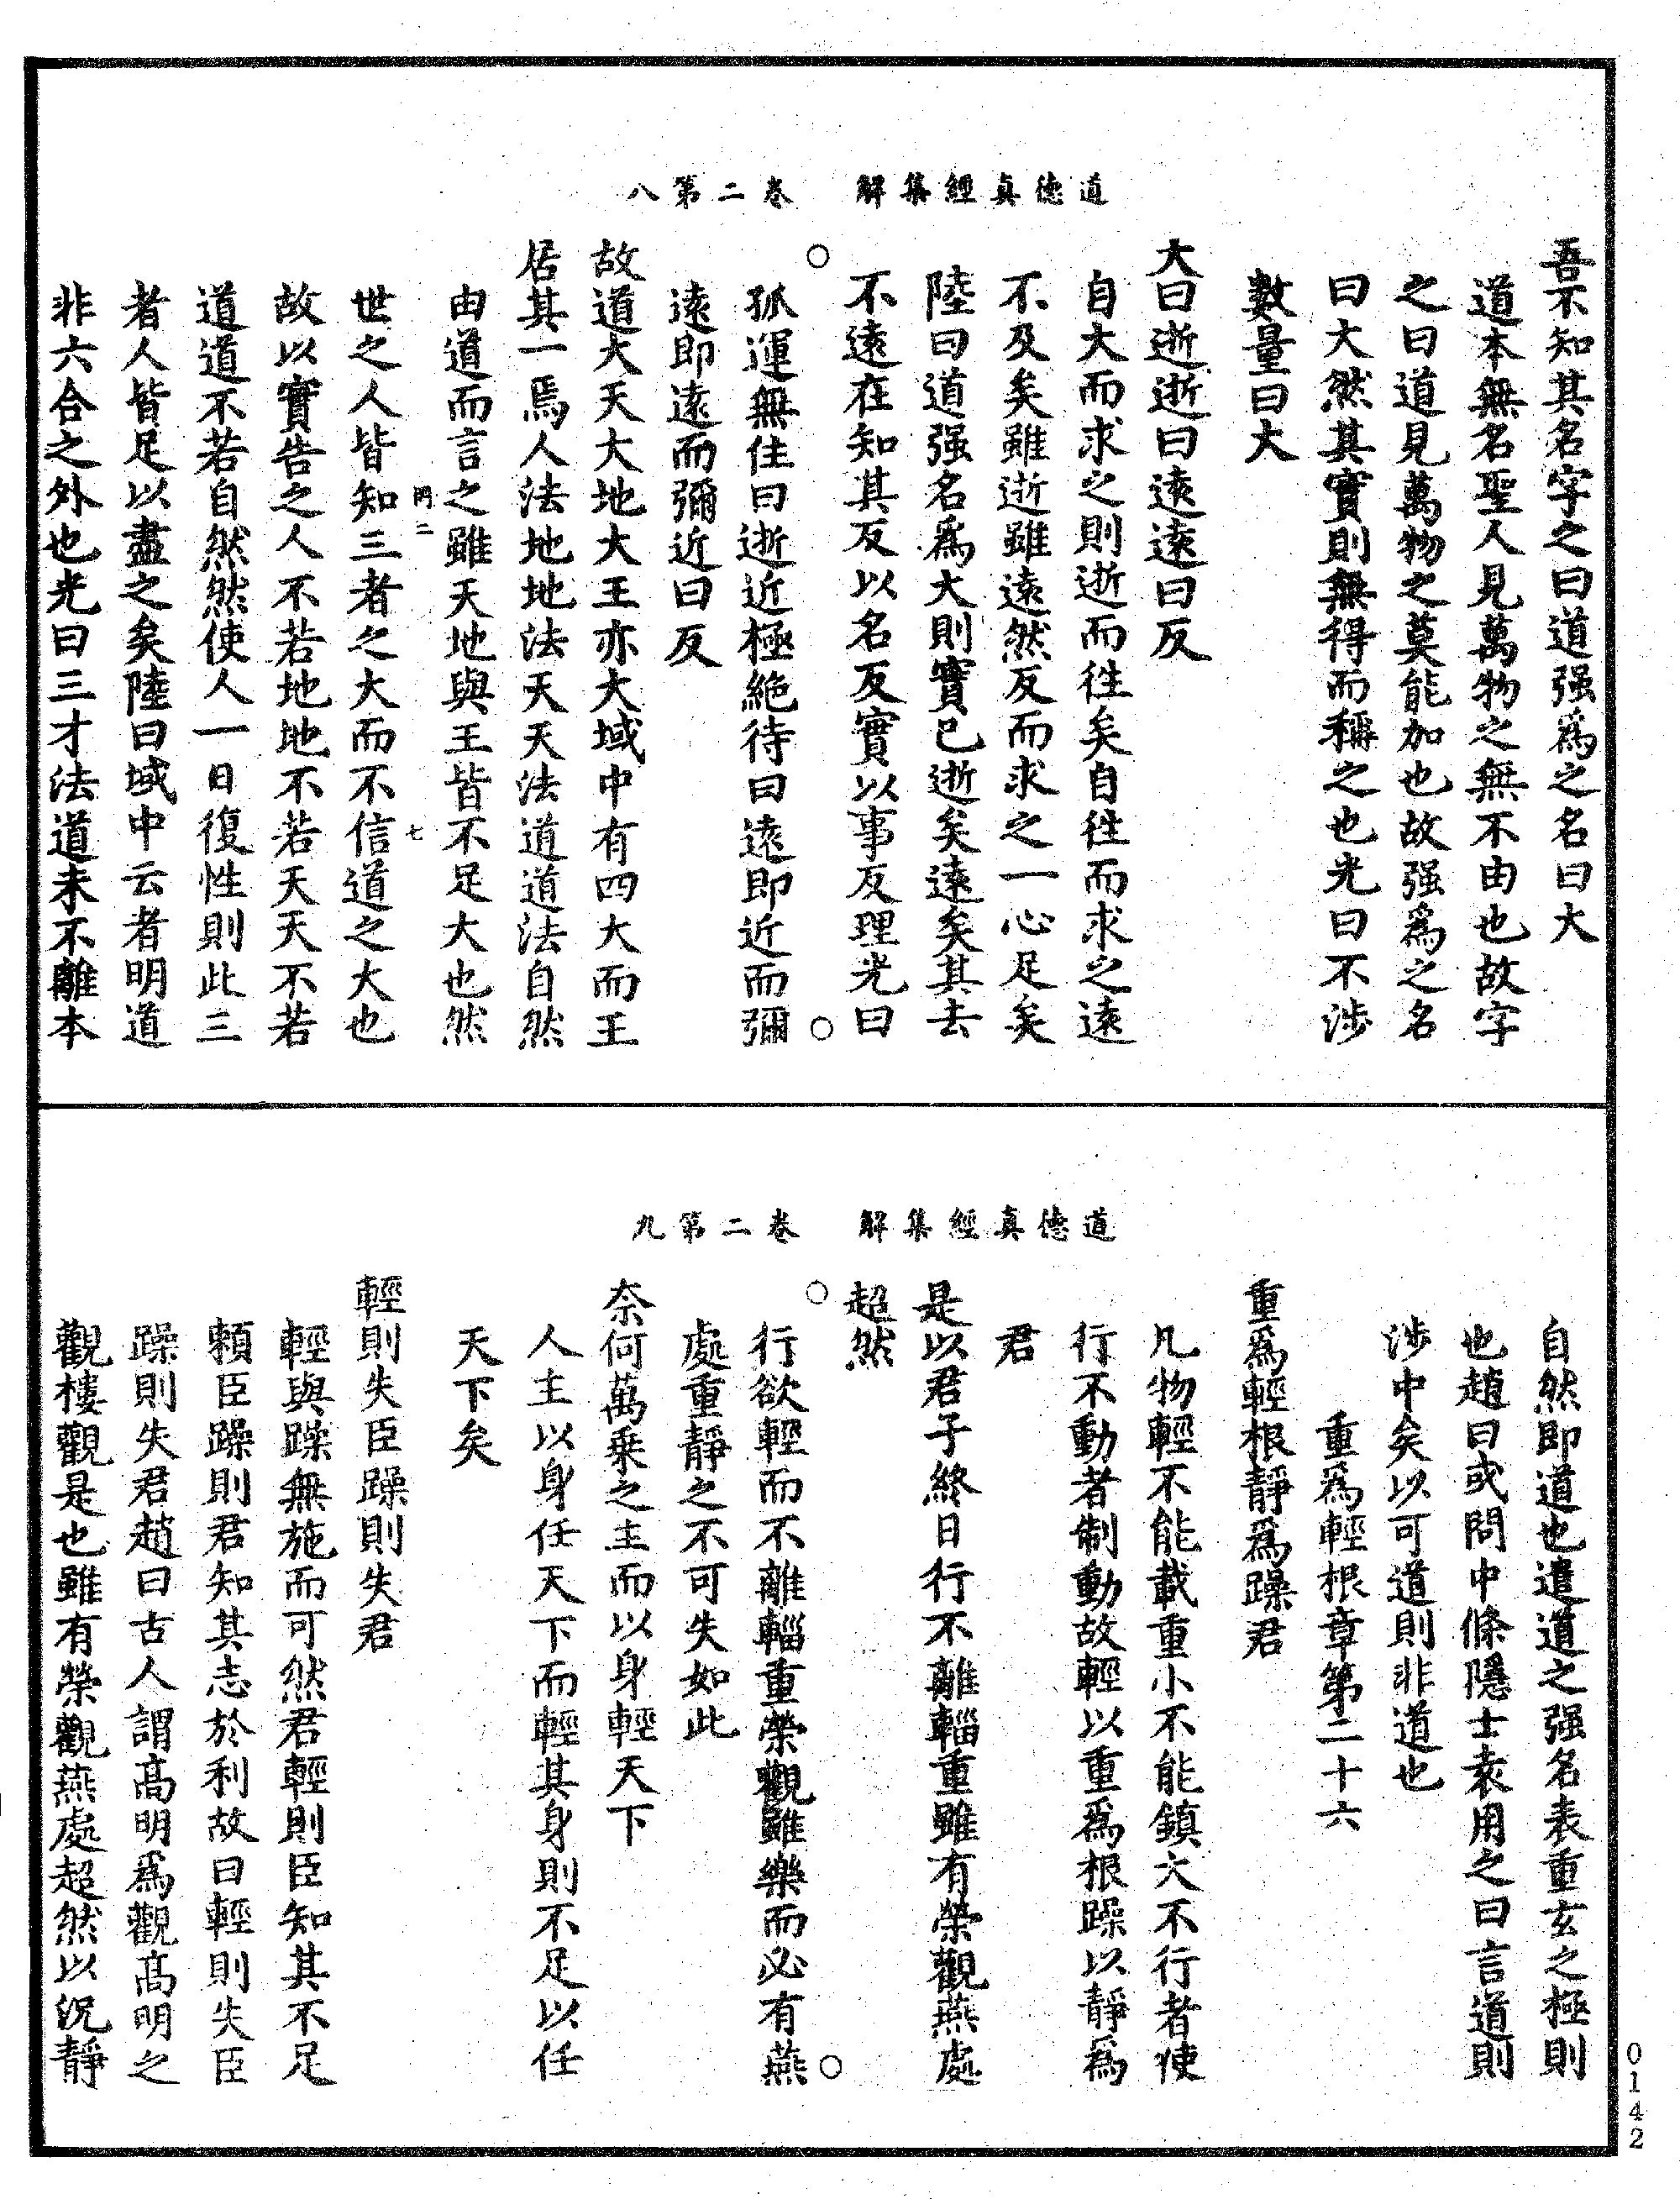 道德真經集解 卷二第八
吾不知其名字之曰道强爲之名曰大
道本無名聖人見萬物之無不由也故字
之曰道見萬物之莫能加也故强爲之名
曰大然其實則無得而稱之也光曰不涉
數量曰大
大曰逝逝曰遠遠曰反
自大而求之則逝而往矣自往而求之遠
不及矣雖逝雖遠然反而求之一心足矣
陸曰道强名爲大則實已逝矣遠矣其去
不遠在知其反以名反實以事反理光曰
孤運無住曰逝近極絶待曰遠即近而彌
遠即遠而彌近曰反
故道大天大地大王亦大域中有四大而王
居其一焉人法地地法天天法道道法自然
由道而言之雖天地與王皆不足大也然
罔三 七
世之人皆知三者之大而不信道之大也
故以實告之人不若地地不若天天不若
道道不若自然然使人一日復性則此三
者人皆足以盡之矣陸曰域中云者明道
非六合之外也光曰三才法道未不離本
道德真經集解 卷二第九
自然即道也遣道之强名表重玄之極則
也趙曰或問中條隱士袁用之曰言道則
涉中矣以可道則非道也
重爲輕根章第二十六
重爲輕根靜爲躁君
凡物輕不能載重小不能鎮大不行者使
行不動者制動故輕以重爲根躁以靜爲
君
是以君子終日行不離輜重雖有榮觀燕處
超然
行欲輕而不離輜重榮觀雖樂而必有燕
處重靜之不可失如此
奈何萬乗之主而以身輕天下
人主以身任天下而輕其身則不足以任
天下矣
輕則失臣躁則失君
輕與躁無施而可然君輕則臣知其不足
賴臣躁則君知其志於利故曰輕則失臣
躁則失君趙曰古人謂髙明爲觀髙明之
觀樓觀是也雖有榮觀燕處超然以況靜
0142